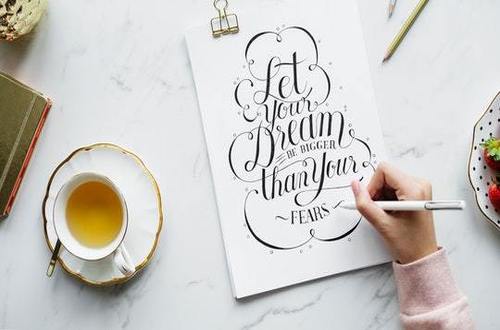 Let
Your
Dream
BE BIGGER
than Your
~FEARS~